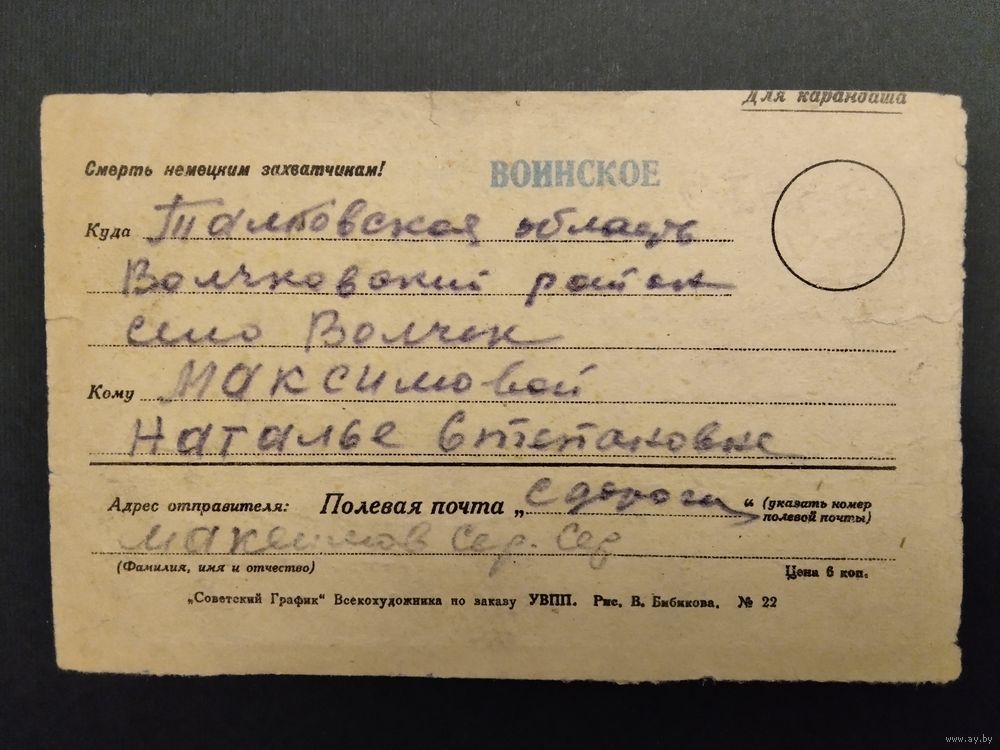 Для карандаша
Смерть немецким захватчикам!
ВОИНСКОЕ
Куда Тамбовская область
Волчковский район
село Волчек
Кому Максимовой
Наталье Степановне
Адрес отправителя: Полевая почта „с дороги“ (указать номер
полевой почты)
Максимов Сер. Сер
(Фамилия, имя и отчество)
Цена 6 коп.
„Советский График“ Всекохудожника по заказу УВПП. Рис. В. Бибикова. № 22
www.ay.by